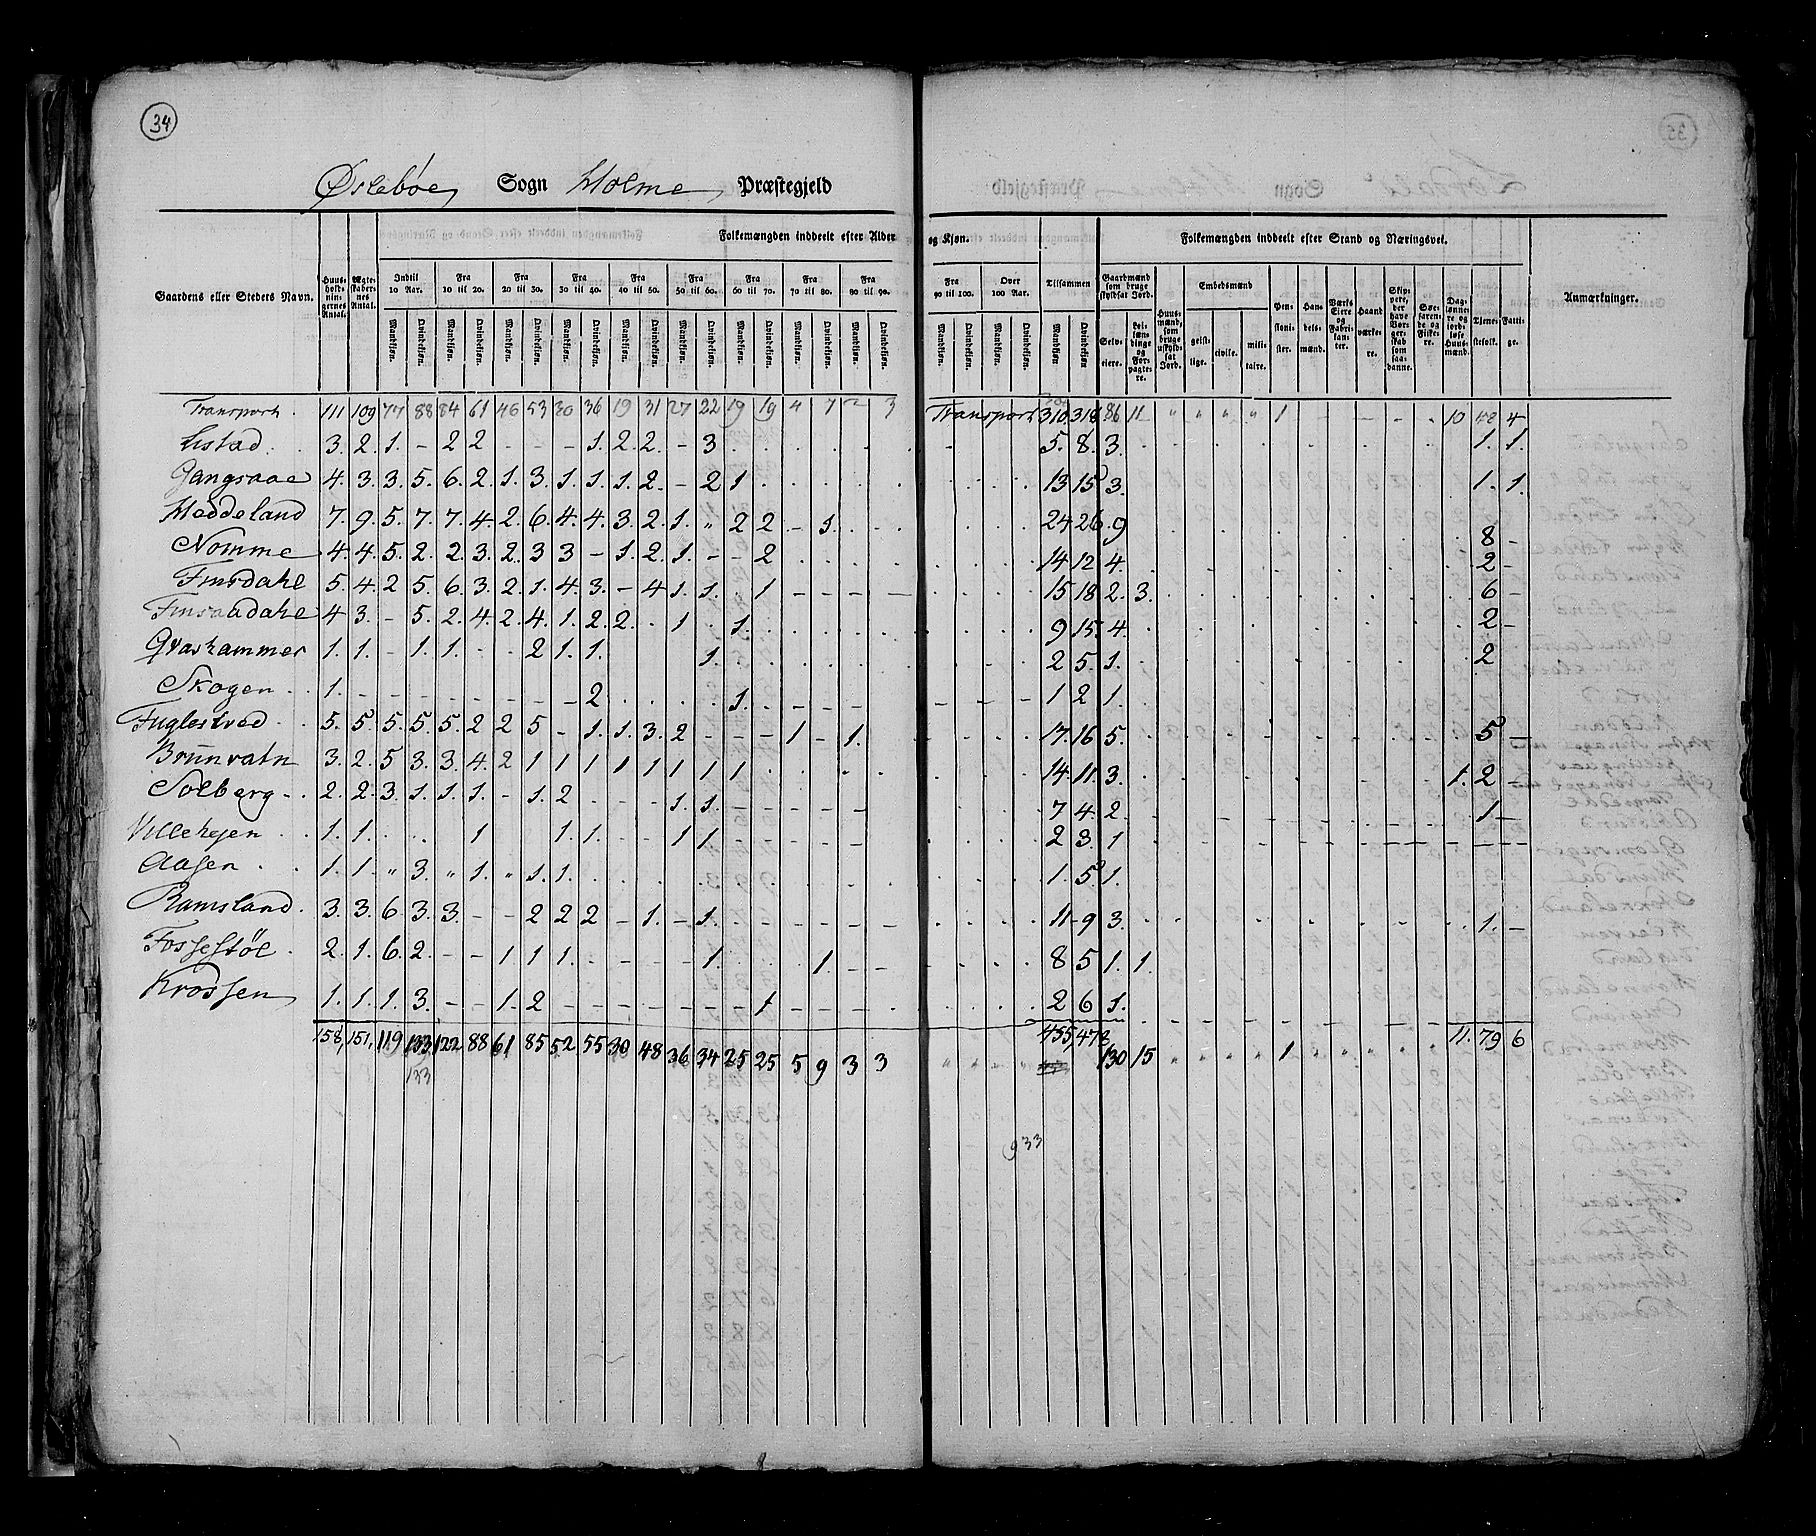 34
Øslebøe Sogn Holme Præstegjeld
Folkemængden inddeelt efter Alder og Kjøn.
Folkemængden inddeelt efter Stand og Næringsvei.
Gaardens eller Stedets Navn. Huus-holdnin-gernes Antal. Ægte-skaber-nes Antal. Indtil 10 Aar. Fra 10 til 20. Fra 20 til 30. Fra 30 til 40. Fra 40 til 50. Fra 50 til 60. Fra 60 til 70. Fra 70 til 80. Fra 80 til 90. Fra 90 til 100. Over 100 Aar. Tilsammen Gaardmænd som bruge skyldsat Jord. Embedsmænd Anmærkninger.
Mandkjøn. Qvindekjøn. Mandkjøn. Qvindekjøn. Mandkjøn. Qvindekjøn. Mandkjøn. Qvindekjøn. Mandkjøn. Qvindekjøn. Mandkjøn. Qvindekjøn. Mandkjøn. Qvindekjøn. Mandkjøn. Qvindekjøn. Mandkjøn. Qvindekjøn. Mandkjøn. Qvindekjøn. Mandkjøn. Qvindekjøn. Mandkjøn Qvindekjøn. Selv-eiere. Lei-lændinge og For-pagtere. Huus-mænd, som bruge uskyld-sat Jord. geist-lige. civile. mili-taire. Pen-sioni-ster. Han-dels-mænd. Værks Eiere og Fabri-kan-ter. Haand værke-re. Skip-pere, der have Bor-ger-skab som saa-danne. Søe-faren-de og Fiske-re. Dag-lønne-re og jord-løse Huus-mænd. Tjene-stefolk. Fatti-ge.
Transport. 111 109 77 88 84 61 46 53 30 36 19 31 27 22 19 19 4 7 2 3 Transport 310 318 86 11 " " " " 1 - - - 10 48 4
3. 2. 1. - 2 2 - - - 1. 2. 2. - 3 5. 8. 3. 1. 1.
Gangsaae 4. 3. 3. 5. 6. 2. 1. 3. 1. 1. 1. 2. - 2 1 13 15 3. 1. 1.
Heddeland 7. 9. 5. 7. 7. 4 2. 6. 4. 4. 3. 2. 1. " 2 2 - 1. 24 26. 9 8 -
Nomme 4. 4. 5. 2. 2. 3. 2. 3 3 - 1. 2. 1. - - 2 14 12 4. 2 -
Finsdahl 5. 4. 2 5. 6. 3. 2. 1. 4. 3. - 4 1. 1. 1 - - - - 15 18 2. 3. 6 -
Finsaadahl 4 3. - 5. 2. 4. 2. 4. 1. 2. 2. 1 1. 9 15. 4. 2 -
Gvashammer 1. 1. - 1. 1. - - 2 1. 1. 1. 2 5. 1. 2
Skogen 1. - - - - - - - - 2 1. - - - - 1 2 1.
Fuglestved 5. 5. 5. 5. 5. 2 2 5 - 1. 1. 3. 2 - - - 1 - 1. 17. 16 5. 5 -
Brunvatn 3. 2. 5 3. 3. 4. 2 1 1 1 1 1 1 1 1 14. 11. 3. 1. 2 -
Solberg 2. 2. 3. 1. 1. 1. - 1. 2 1. 1. 7 4. 2. 1 -
1. 1. 1 1. 1. 1 1 2 3. 1
Aasen 1. 1. " 3. " 1. " 1. 1. 1. 5 1.
Ramsland 3. 3. 6 3. 3. - - 2 2 2 - 1. - 1. 11 9 3. 1. -
Fossestøl 2. 1. 6. 2. - - 1 1 1. 1. 1. - - 8 5 1. 1.
Krossen 1. 1. 1. 3. - - 1. 2 - - - - - - - 1 2 6 1.
158, 151, 119 133 122 88 61 85 52 55 30 48 36 34 25 25 5 9 3 3 " " " " 455, 478 130 15 " " " " 1 " " " " 11. 79 6
133
933